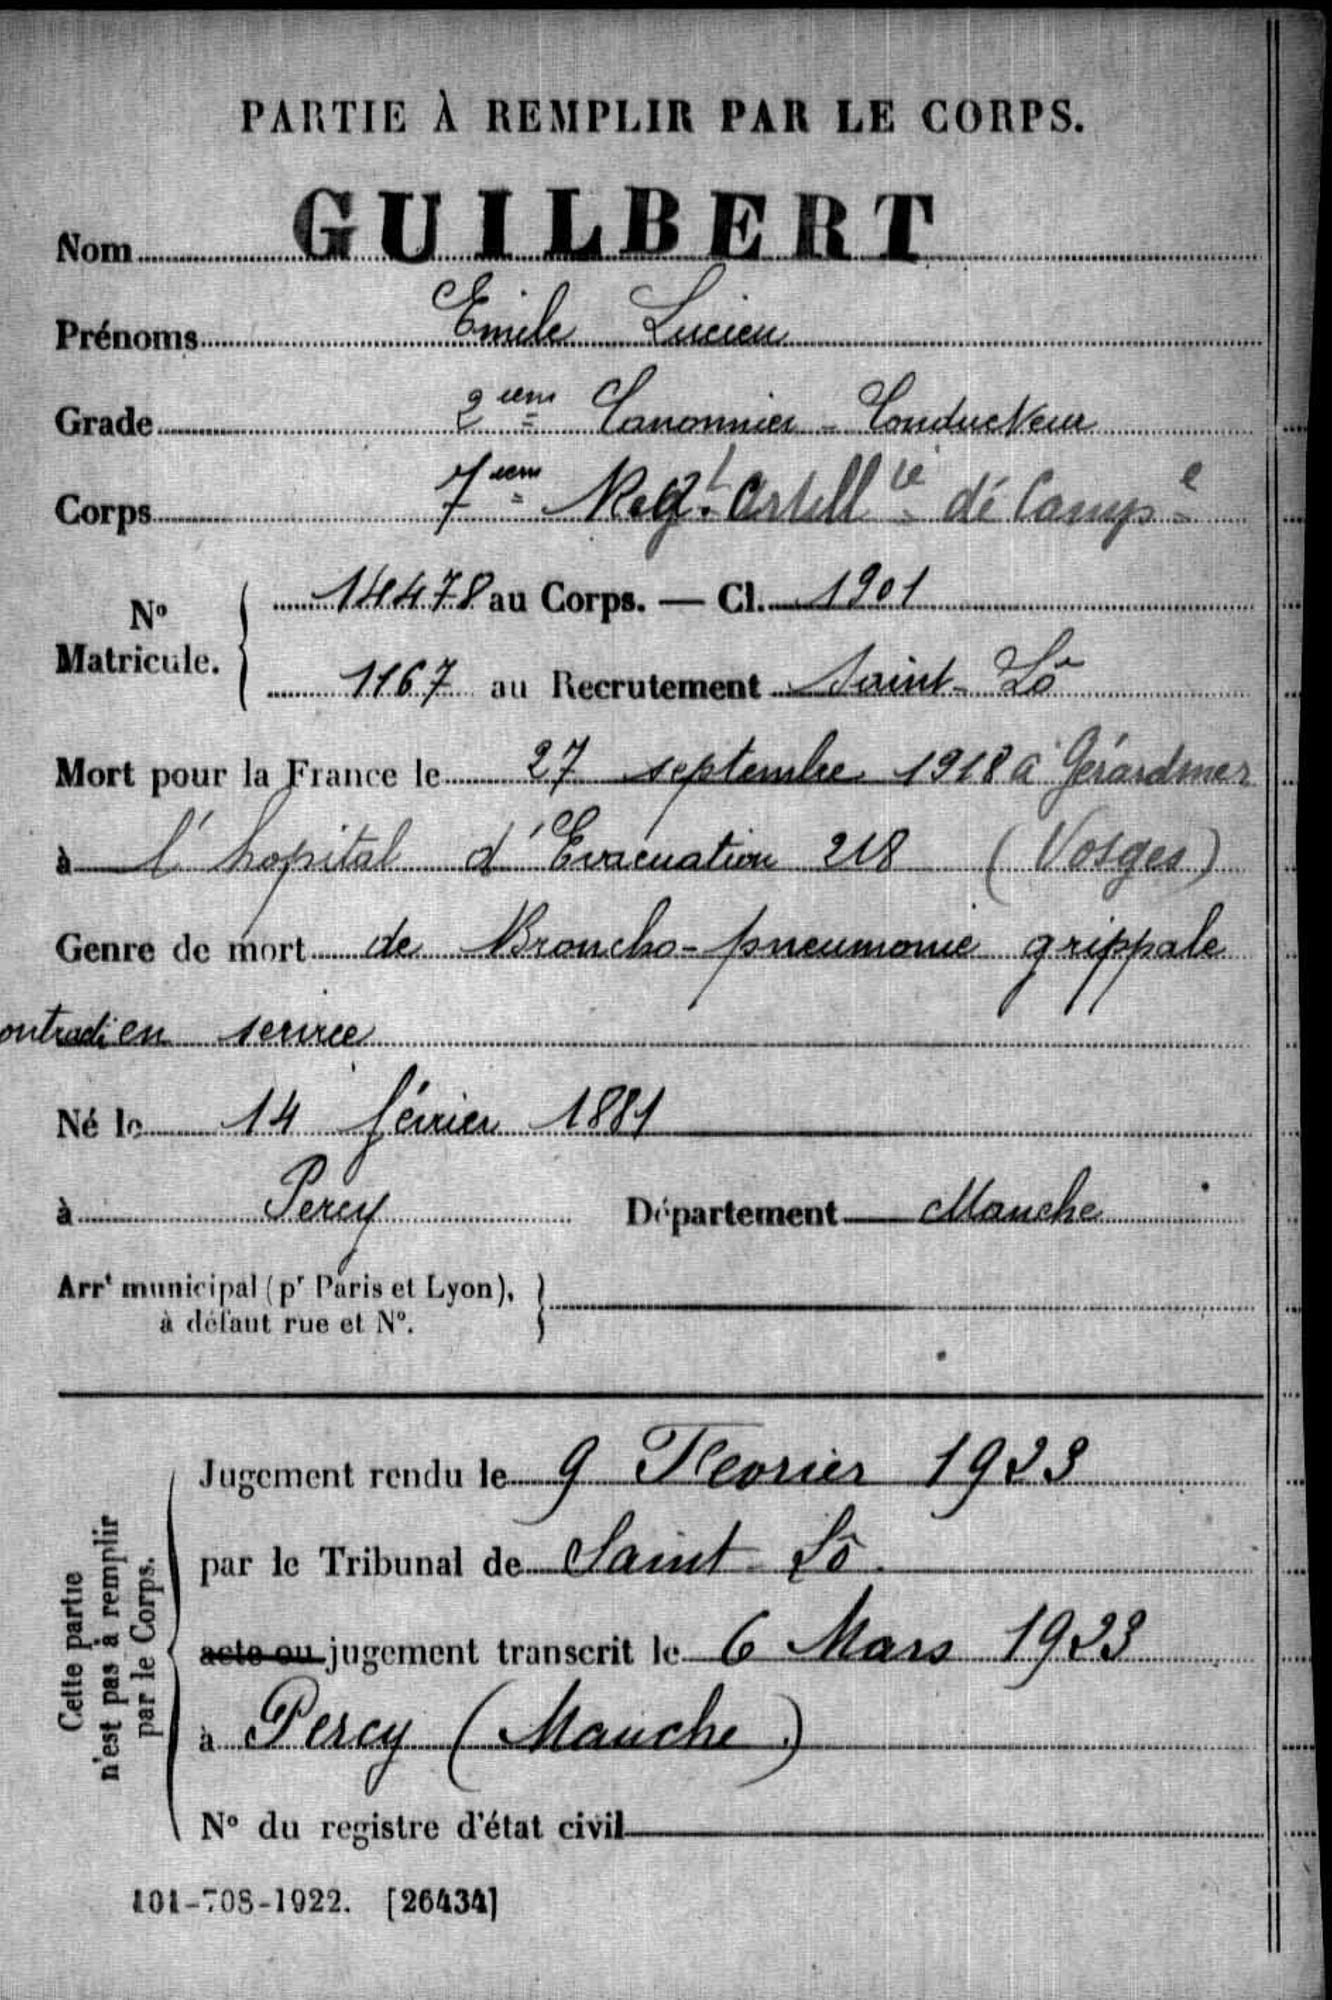 PARTIE À REMPLIR PAR LE CORPS.
Nom GUILBERT
Prénoms Emile Lucien
Grade 2ième Canonnier - Conducteur
Corps 7ième Regt. Artillie de Campe
No Matricule. 14478 au Corps. — Cl. 1901
1167 au Recrutement Saint-Lô
Mort pour la France le 27 septembre 1918 à Gérardmer
à l'hopital d'Evacuation 218 (Vosges)
Genre de mort de Broncho-pneumonie grippale
ontract en service
Né le 14 février 1881
à Percy Département Manche
Arrt municipal (pr Paris et Lyon),
à défaut rue et No.
Cette partie
n'est pas à remplir
par le Corps.
Jugement rendu le 9 Fevrier 1923
par le Tribunal de Saint-Lô.
acte ou jugement transcrit le 6 Mars 1923
à Percy (Manche)
No du registre d'état civil
101-708-1922. [26434]